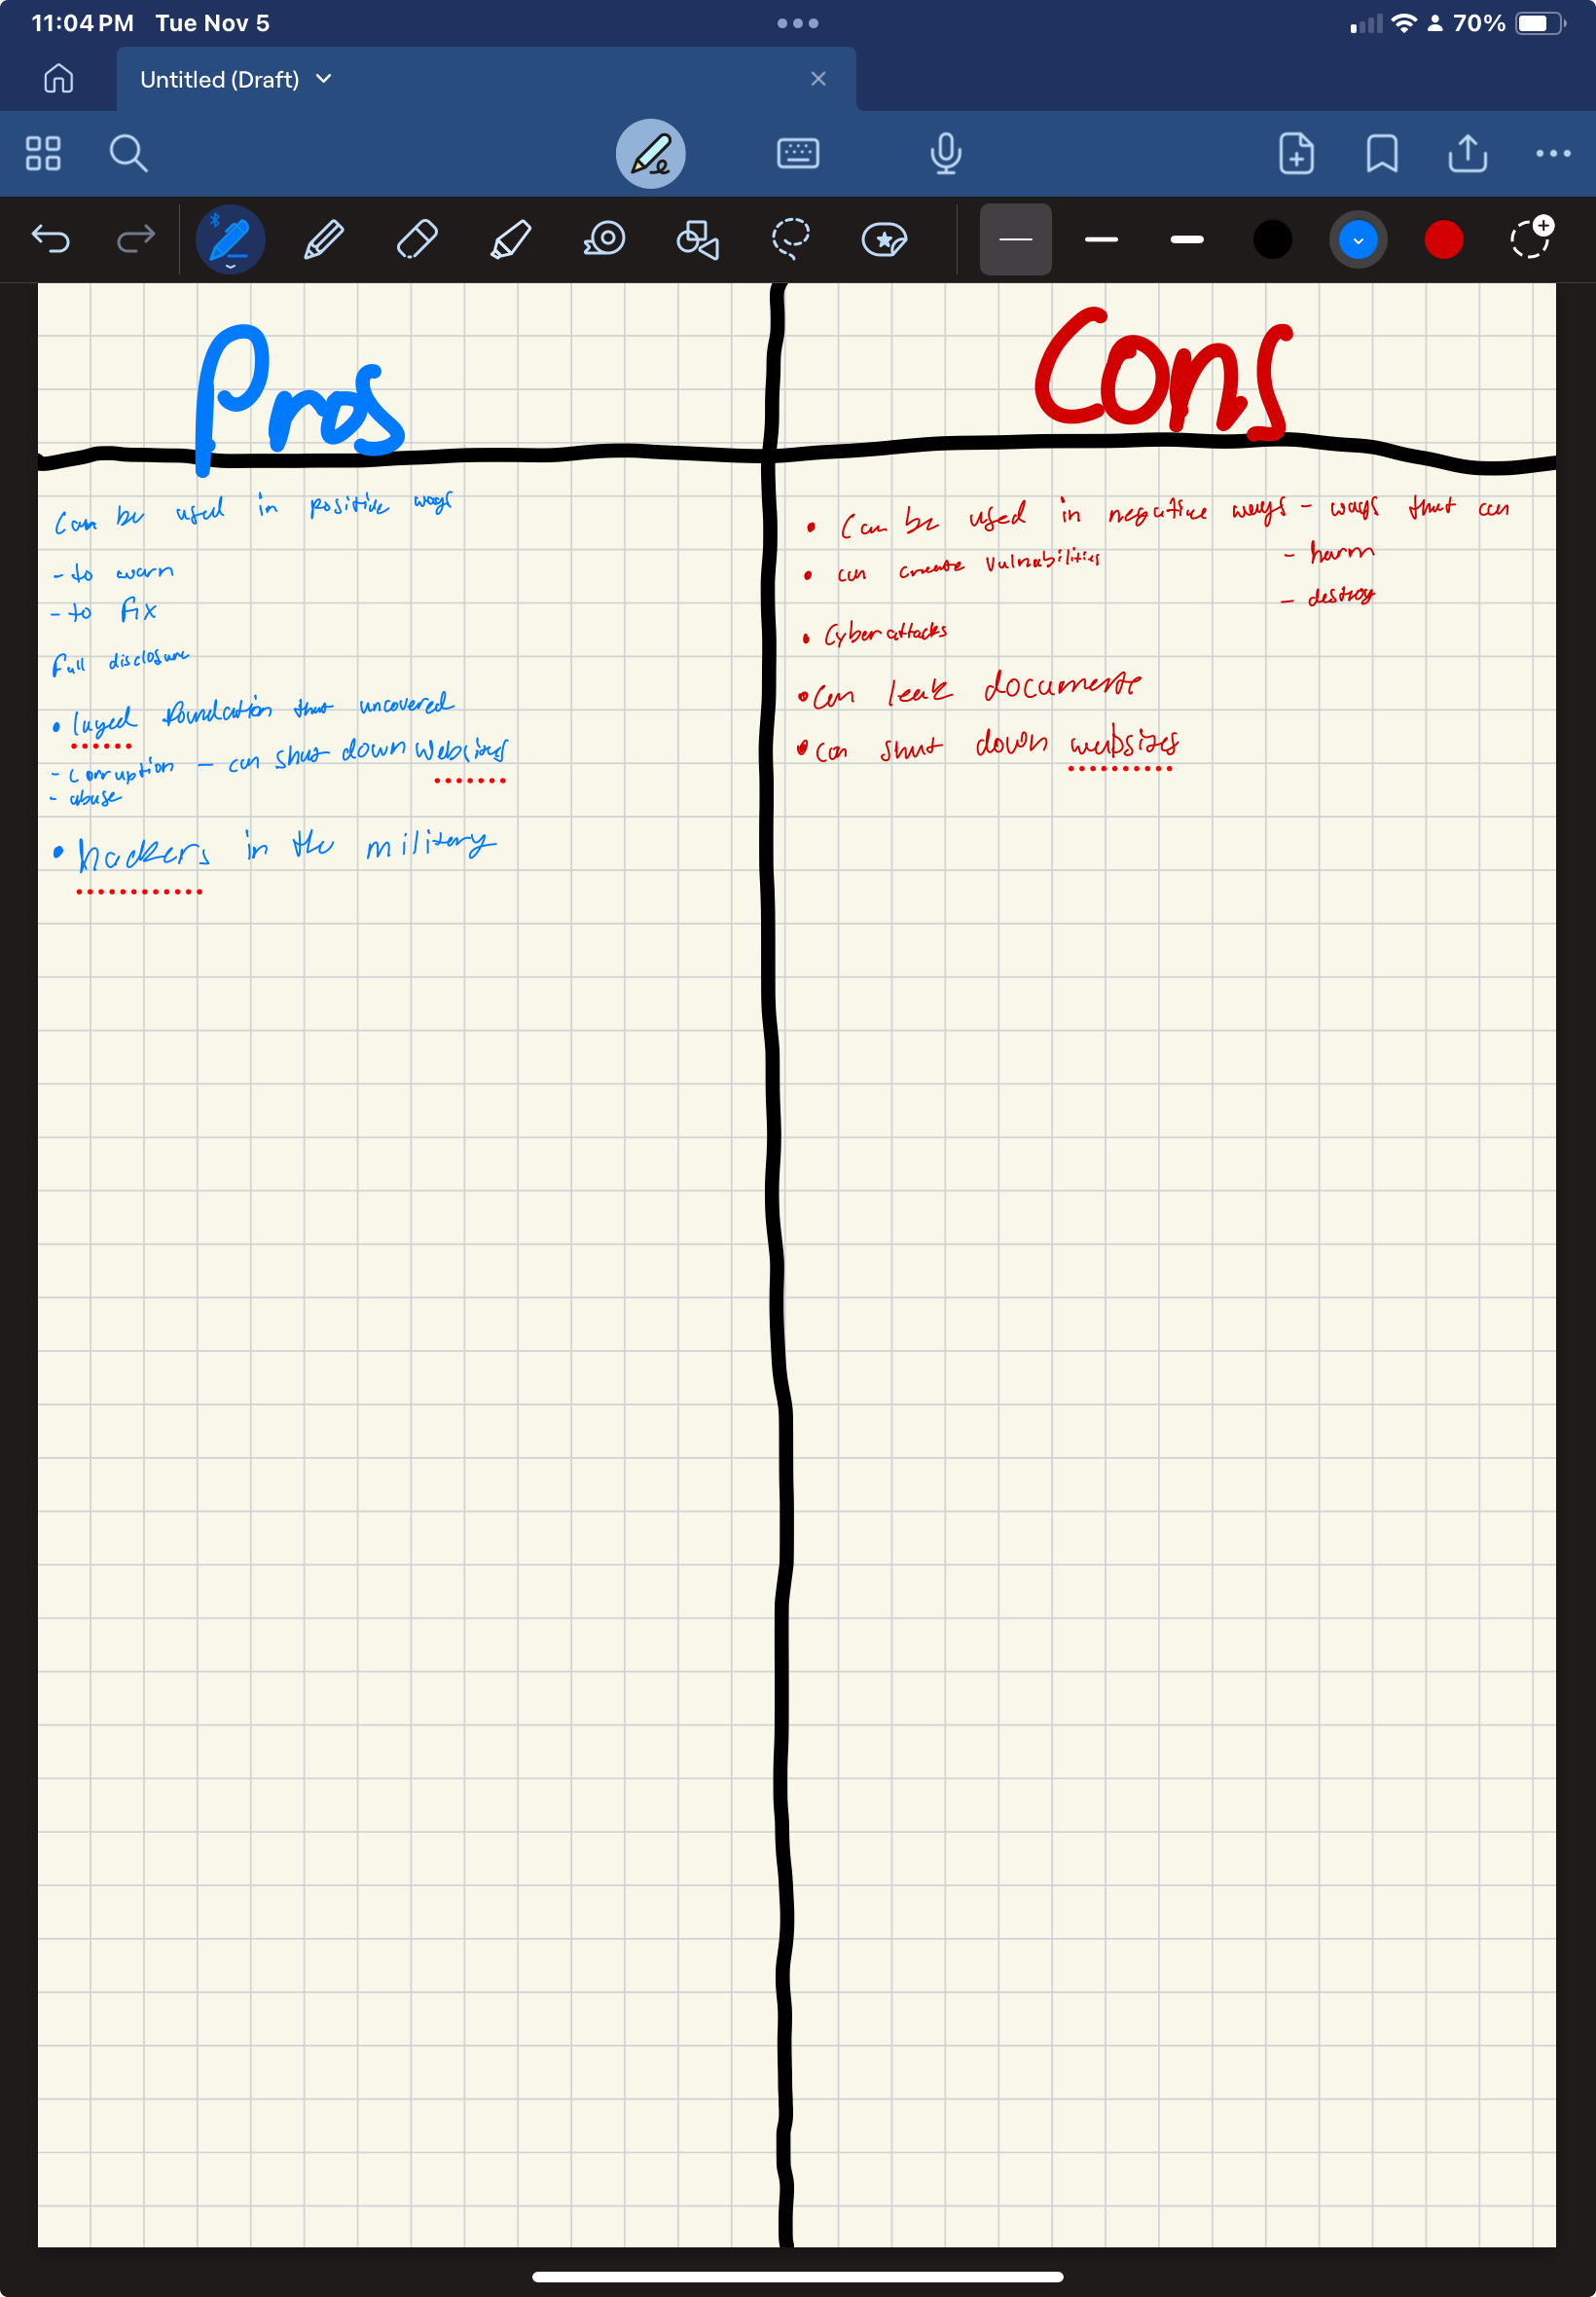 11:04 PM Tue Nov 5
70%
Untitled (Draft)
Pros
Can be used in positive ways
- to warn
- to fix
Full disclosure
• layed foundation that uncovered
- corruption – can shut down websites
- abuse
• hackers in the military
Cons
• Can be used in negative ways - ways that can
- harm
- destroy
• can create vulnabilities
• Cyberattacks
• Can leak documents
• can shut down websites